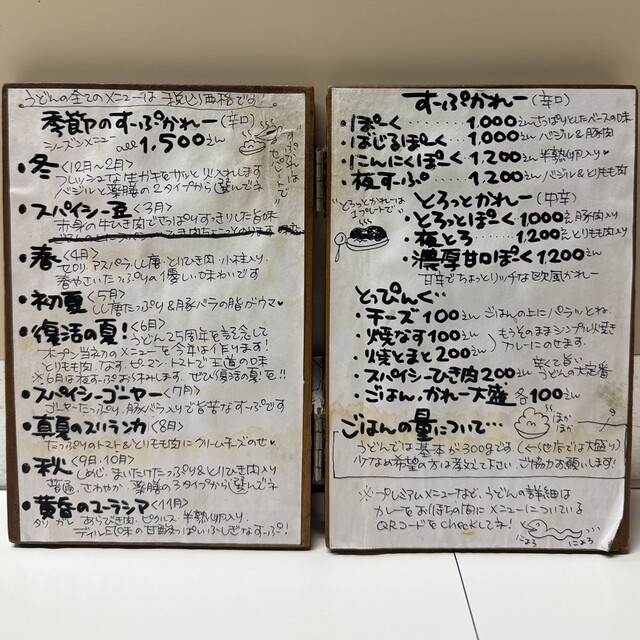 うどんの全てのメニューは税込価格です!
季節のすーぷかれー(辛口)
シーズンメニュー all 1,500えん
すーぷかれーは セパレートで♡
・冬<12月~2月>
フレッシュな生ガキをサッと火入れします
バジルと薬膳の2タイプから選んでネ
・スパイシー豆<3月>
赤身の牛ひき肉でさっぱりすっきりした旨味
・春<4月>
セロリ、アスパラ、しし唐・とりひき肉、小柱入り。
春やさいたっぷりの優しい味わいです
・初夏<5月>
しし唐たっぷり&豚バラの脂がウマ♥
・復活の夏!<6月>
うどん25周年を記念して
オープン当初のメニューを今年は作ります!
とりもも肉、なす、ピーマン、トマトで王道!の味
※6月は夜すーぷお休みします。ぜひ『復活の夏』を!!
・スパイシーゴーヤー<7月>
ゴーヤーたっぷり、豚バラ入りで旨苦なすーぷです
・真夏のスリランカ<8月>
たっぷりのトマト&とりもも肉にクリームチーズのせ♥
・秋<9月、10月>
しめじ、まいたけたっぷり&とりひき肉入り
旨唐、さわやか、薬膳の3タイプから選んでネ
・黄昏のユーラシア<11月>
あらびき肉、ピクルス、半熟卵入り。
ディル風味の甘酸っぱいふしぎなすーぷ!
すーぷかれー(辛口)
・ぽーく……1,000えん さっぱりとしたベースの味
・ばじるぽーく…1,000えん バジル&豚肉
・にんにくぽーく 1,200えん 半熟卵入り♥
・夜すーぷ……1,200えん バジル&とりもも肉
とろっとかれー(中辛)
"とろっとかれーは 1プレートで"
・とろっとぽーく 1,000えん 豚肉入り
・夜とろ……1,200えん とりもも肉入り
・濃厚甘口ぽーく 1200えん
甘辛でちょっとリッチな欧風かれー
とっぴんぐ…
・チーズ 100えん ごはんの上にパラッとね
・焼なす 100えん
・焼とまと 200えん
もうそのままシンプル火焼き カレーにのせます。
・スパイシーひき肉 200えん 辛くて旨い うどんの大定番
・ごはん、かれー大盛 各100えん
ごはんの量について…
ほか ほか
うどんでは基本が300gです。(←ら他店では大盛り)
少なめ希望の方は教えて下さい。ご協力お願いします!
※プレミアムメニューなど、うどんの詳細は
カレーをお待ちの間にメニューについている
QRコードをCheckしてネ!
にょろ にょろ